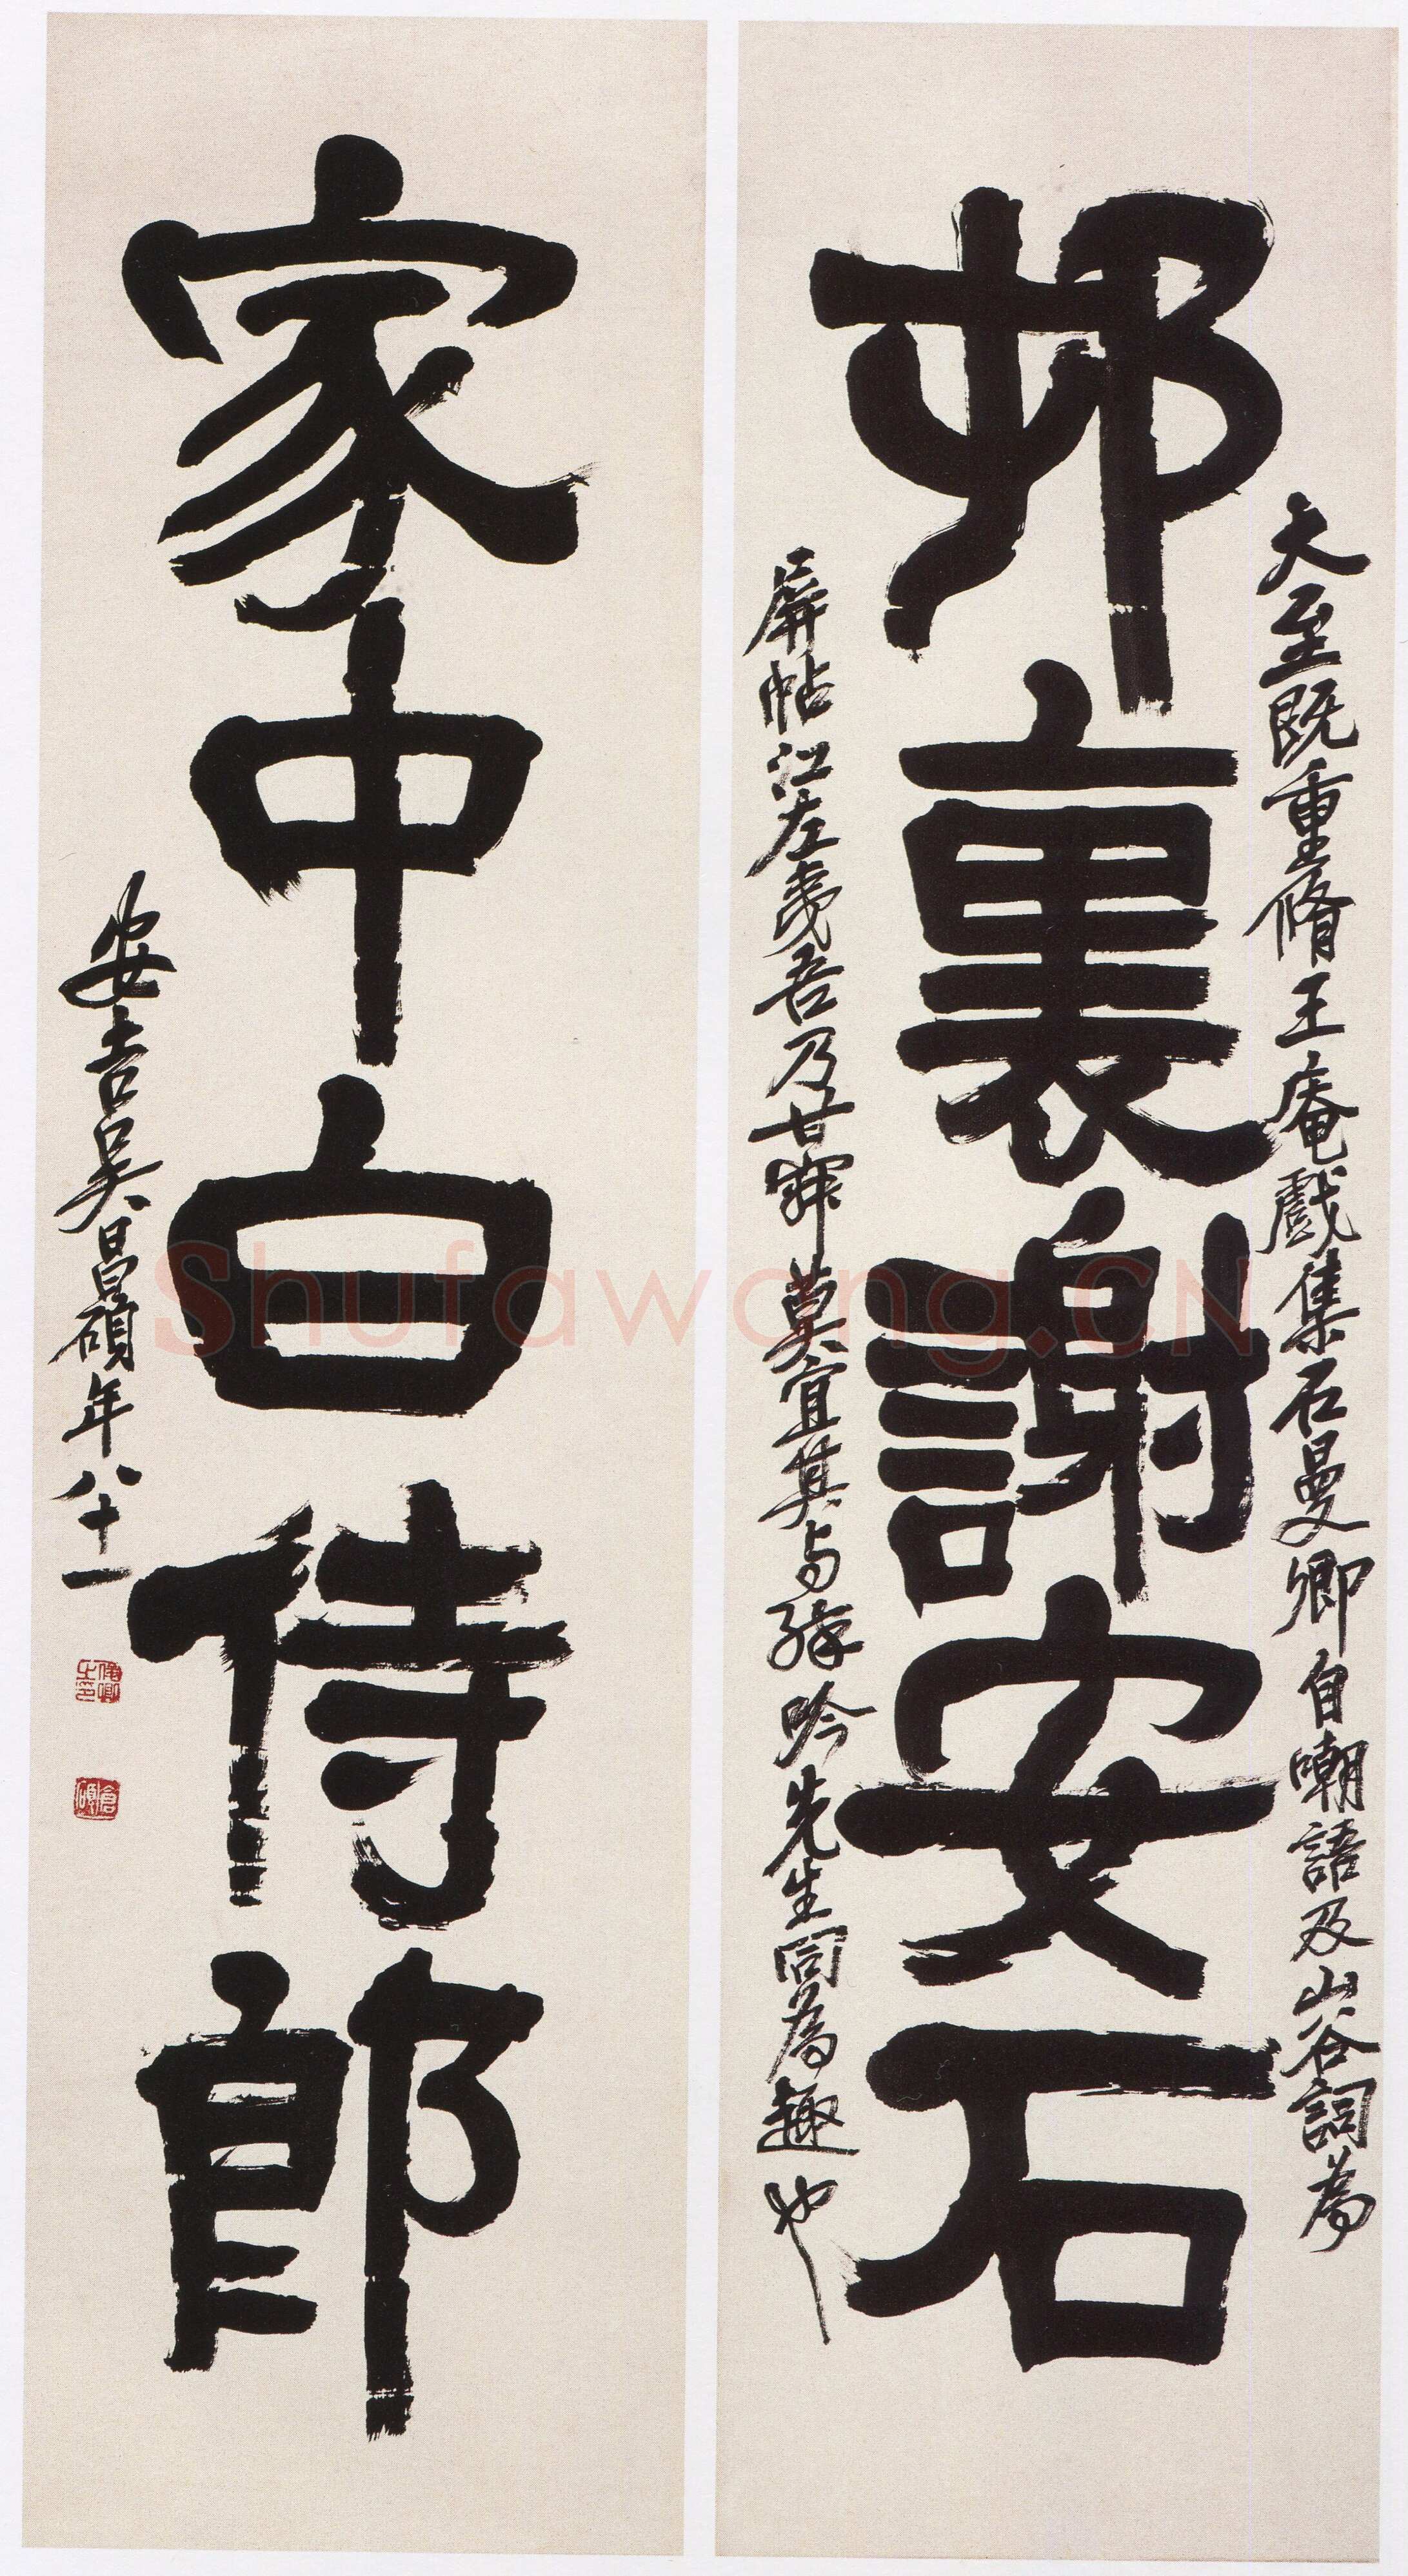 邨裏謝安石
大至既重脩王庵戲集石曼卿自嘲語及山谷詞為
屏帖江左夷吾乃甘寐莫宜其与孫吟先生同為趣也
家中白侍郎
安吉吳昌碩年八十一
倉碩
Shufawang.CN